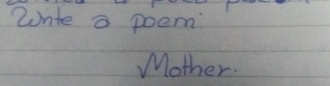 Write a poem
Mother.